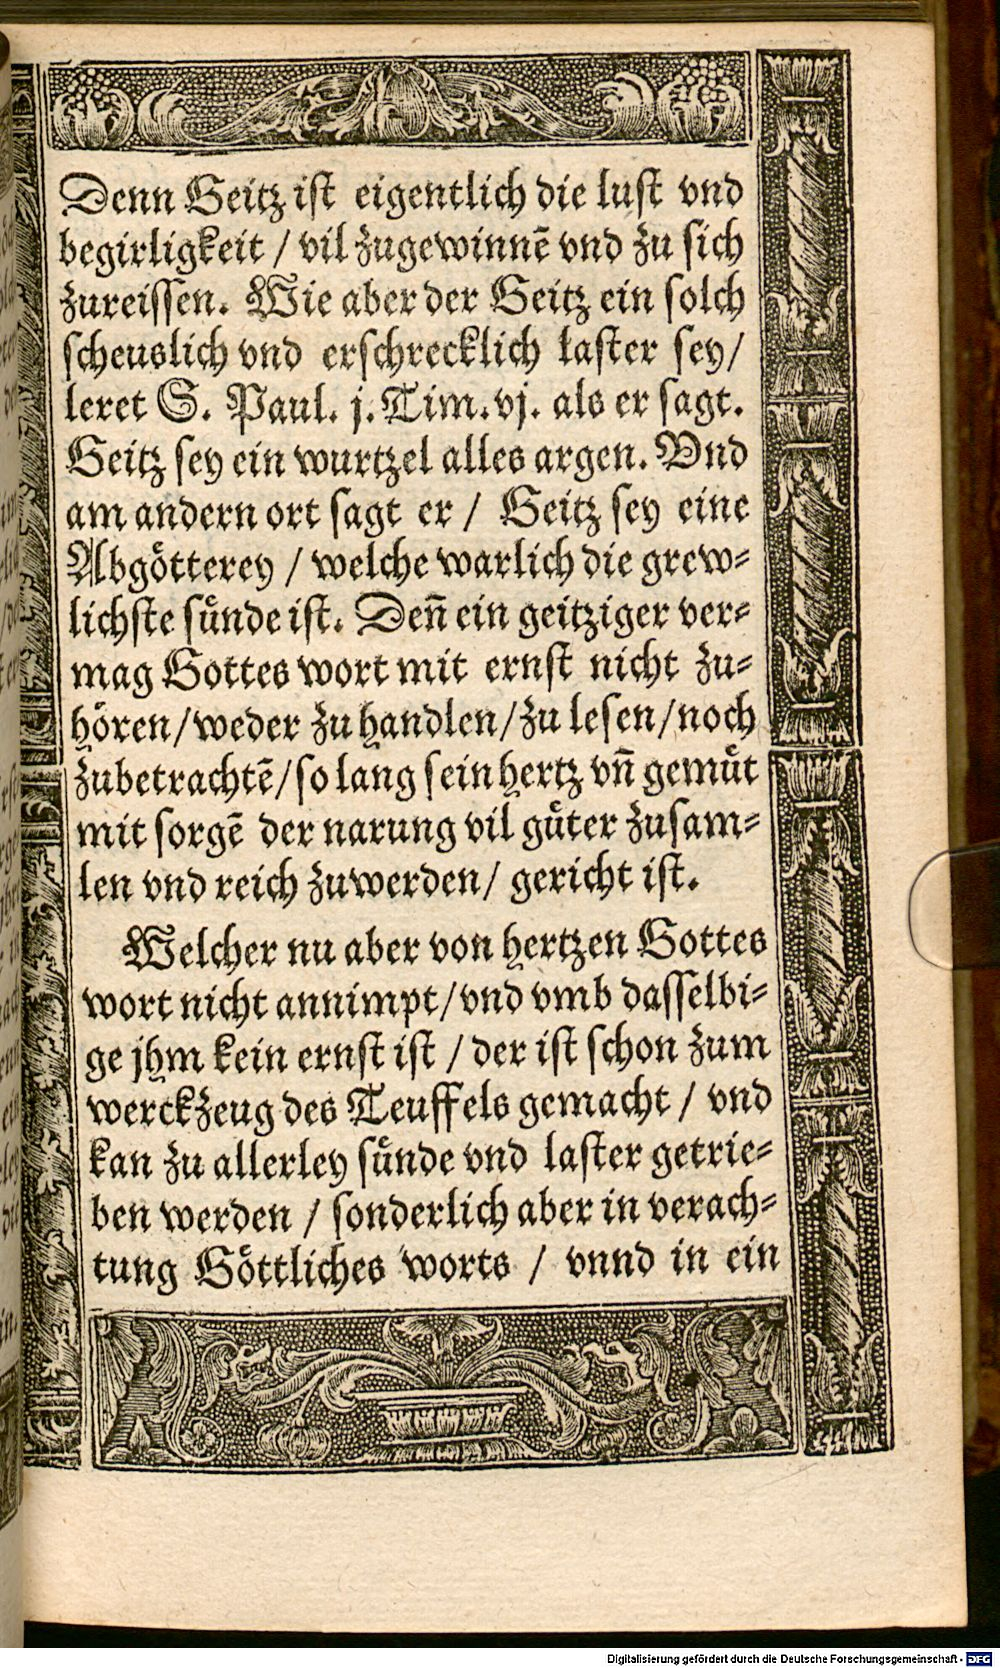 Denn Geitz ist eigentlich die lust vnd
begirligkeit / vil zugewinnẽ vnd zu sich
zureissen. Wie aber der Geitz ein solch
scheuslich vnd erschrecklich laster sey /
leret S. Paul. j. Tim. vj. als er sagt.
Geitz sey ein wurtzel alles argen. Vnd
am andern ort sagt er / Geitz sey eine
Abgötterey / welche warlich die grew-
lichste sünde ist. Deñ ein geitziger ver-
mag Gottes wort mit ernst nicht zu-
hören / weder zu handlen / zu lesen / noch
zubetrachtẽ / so lang sein hertz vñ gemüt
mit sorgẽ der narung vil güter zusam-
len vnd reich zuwerden / gericht ist.
Welcher nu aber von hertzen Gottes
wort nicht annimpt / vnd vmb dasselbi-
ge jhm kein ernst ist / der ist schon zum
werckzeug des Teuffels gemacht / vnd
kan zu allerley sünde vnd laster getrie-
ben werden / sonderlich aber in verach-
tung Göttliches worts / vnnd in ein
Digitalisierung gefördert durch die Deutsche Forschungsgemeinschaft - DFG